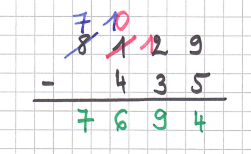 7 10
8 1 12 9
- 4 3 5
7 6 9 4